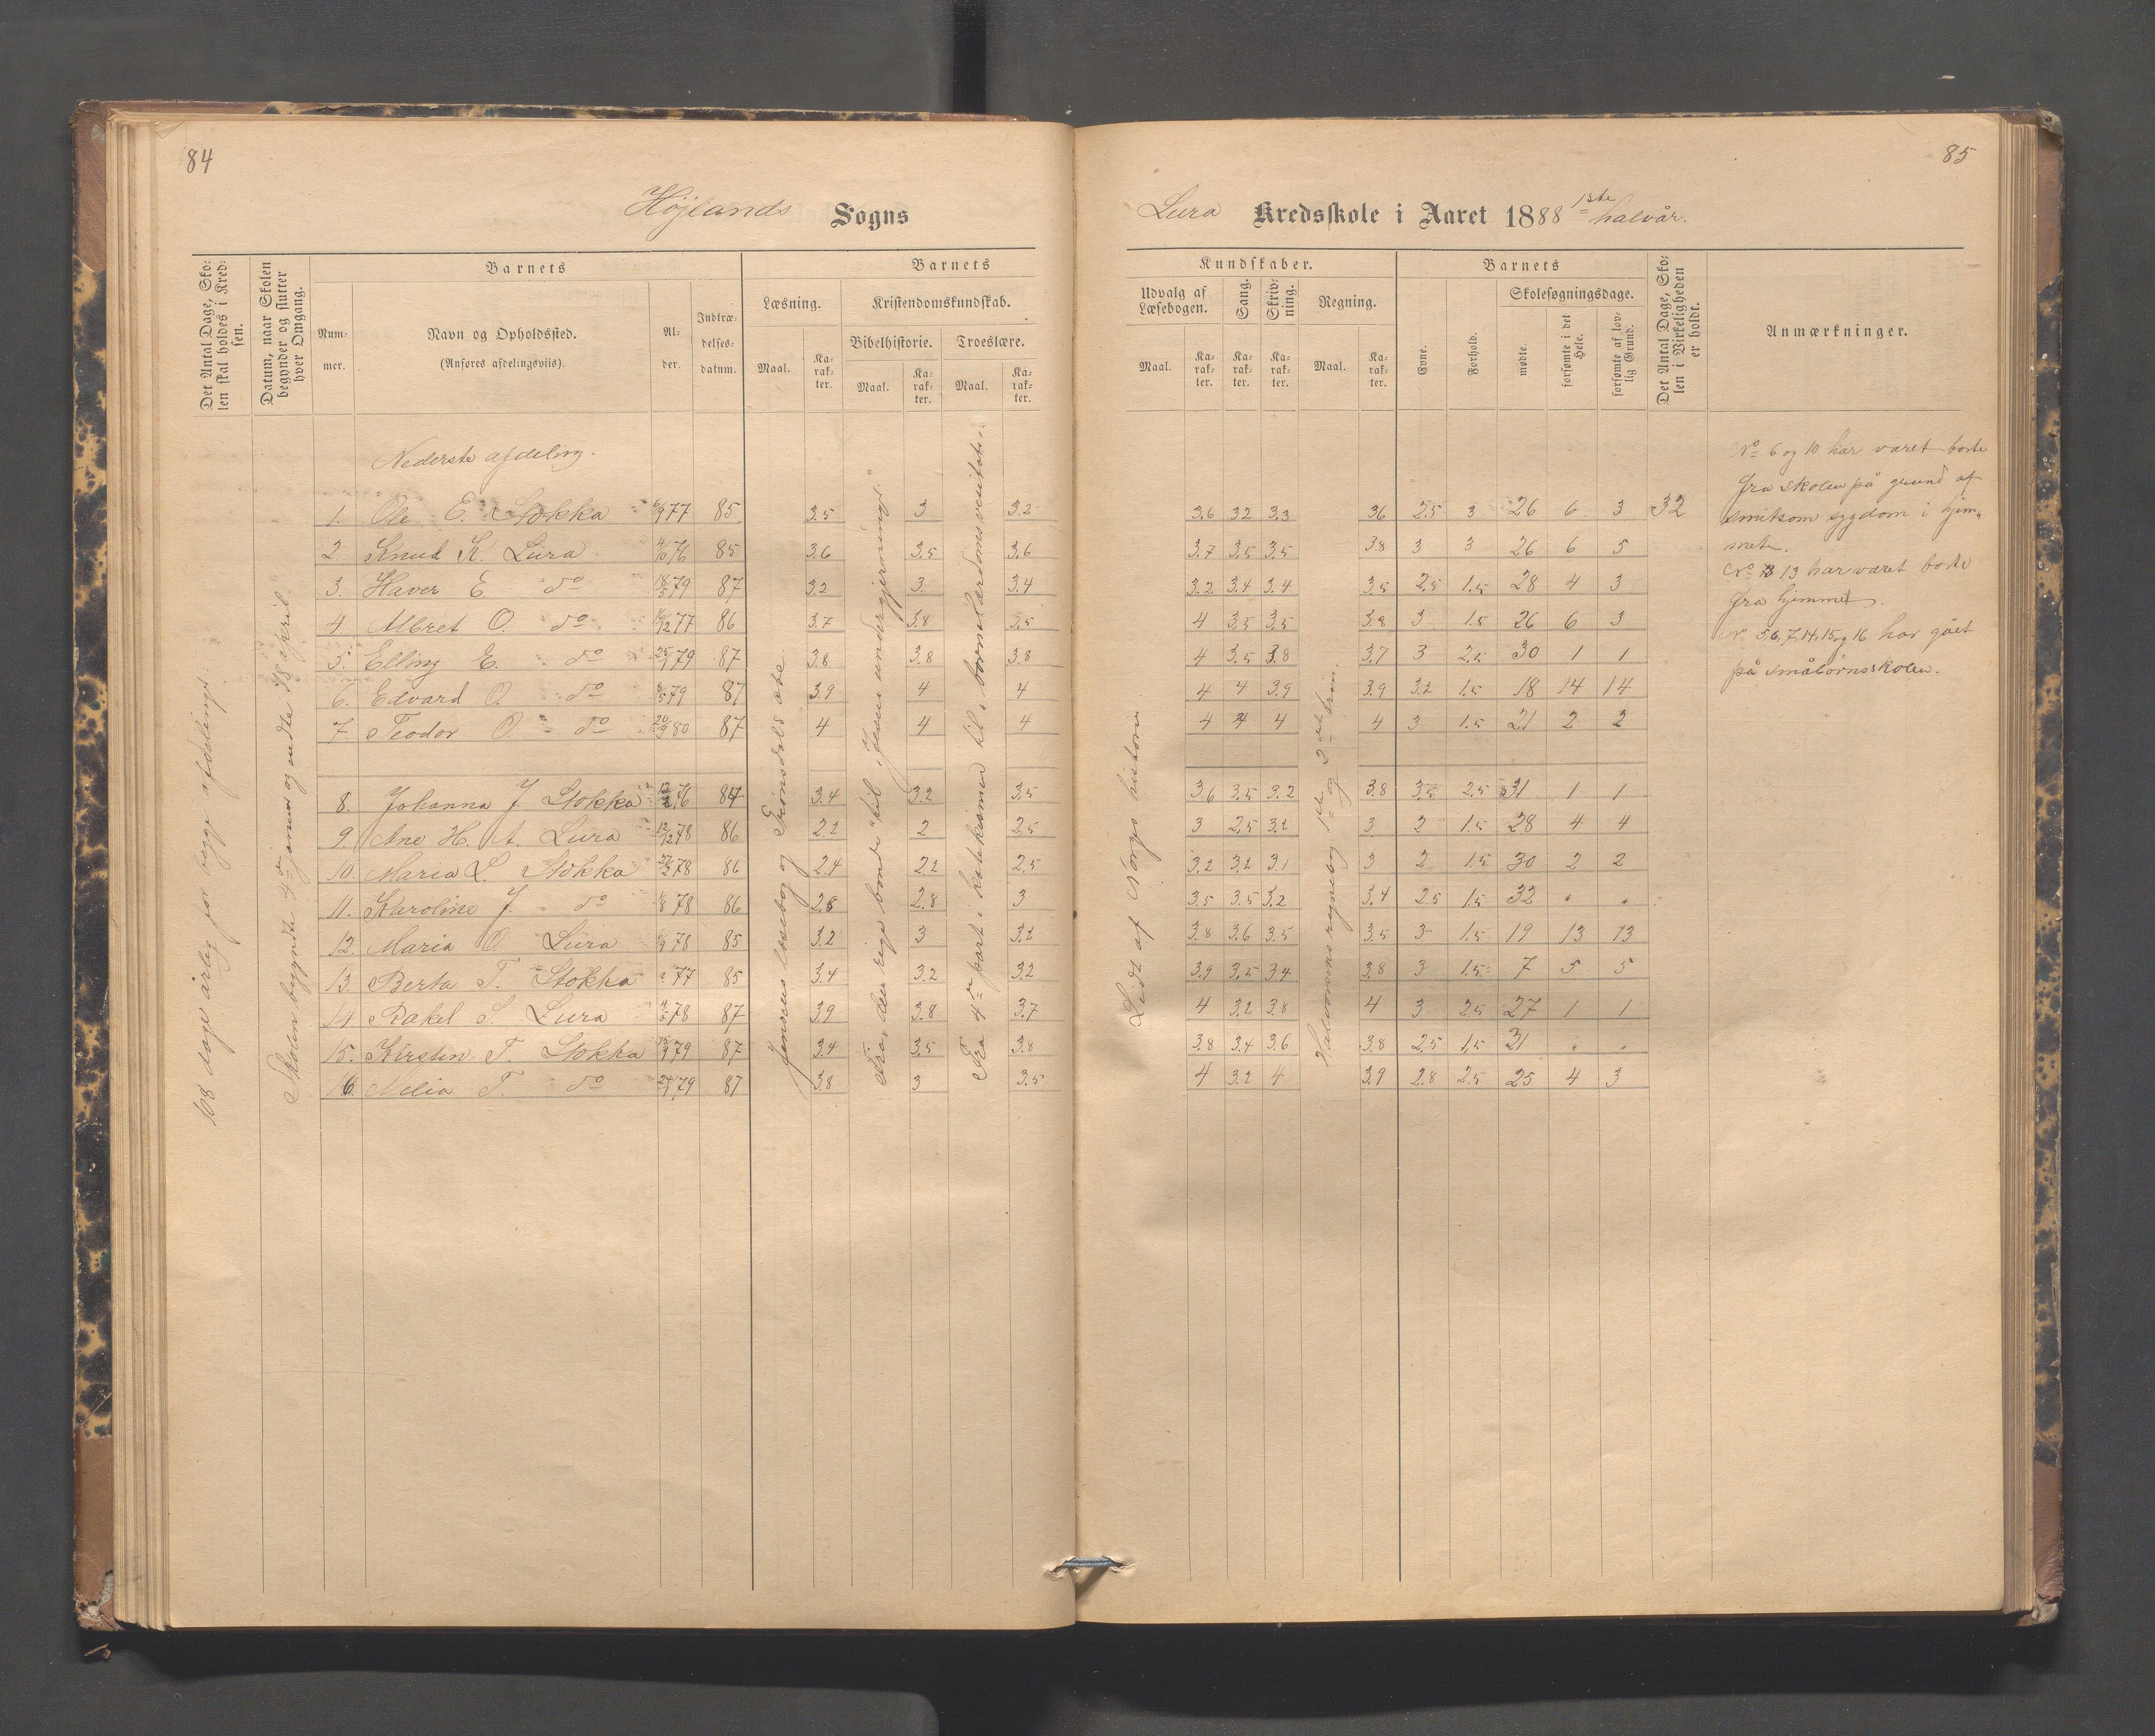 84
Højlands Sogns
Det Antal Dage, Skolen skal holdes i Kredsen.
Datum, naar Skolen begynder og slutter hver Omgang.
Barnets
Nummer.
Navn og Opholdssted.
(Anføres afdelingsviis).
Alder.
Indtrædelsesdatum.
Barnets
Læsning.
Maal.
Karakter.
Kristendomskundskab.
Bibelhistorie.
Maal.
Karakter.
Troeslære.
Maal.
Karakter.
108 dage årlig for begge afdelinger.
Skolen begyndte 4de januar og endte 18 april.
Jensens læsebog og Trondels æbte
Fra „den rige bonde" til „Jesu undergjerninger."
Fra 4de part i katekismen til „børnelærdomsventet".
Nederste afdeling.
1. Ole E. Stokka 6/9 77 85 3.5 3 3.2
2 Knud K. Lura 4/10 76 85 3.6 3.5 3.6
3. Haver E. do 18/5 79 87 3.2 3. 3.4
4 Albret O. do 16/12 77 86 3.7 3.8 3.5
5. Elling E. do 25/1 79 87 3.8 3.8 3.8
6. Edvard O. do 8/5 79 87 3.9 4 4
7. Teodor O. do 20/9 80 87 4 4 4
8. Johanna J. Stokka 12/2 76 84 3.4 3.2 3.5
9. Ane H. A. Lura 12/12 78 86 2.2 2 2.5
10. Maria L. Stokka 27/2 78 86 2.4 2.2 2.5
11. Karoline J. do 1/8 78 86 2.8 2.8 3
12. Maria O. Lura 5/9 78 85 3.2 3 3.2
13. Berta T. Stokka 77 85 3.4 3.2 3.2
14. Rakel S. Lura 4/5 78 87 3.9 3.8 3.7
15. Kirsten T. Stokka 15/9 79 87 3.4 3.5 3.8
16. Melia T. do 24/1 79 87 3.8 3 3.5
85
Lura Kredsskole i Aaret 1888 1ste halvår.
Kundskaber.
Udvalg af Læsebogen.
Maal.
Karakter.
Sang.
Karakter.
Skrivning.
Karakter.
Regning.
Maal.
Karakter.
Barnets
Evne.
Forhold.
Skolesøgningsdage.
mødte.
forsømte i det Hele.
forsømte af lovlig Grund.
Det Antal Dage, Skolen i Virkeligheden er holdt.
Anmærkninger.
Lidt af Norges historie
Halvorsens regnebog 1ste og 2det trin.
3.6 3.2 3.3 3.6 2.5 3 26 6 3 32
3.7 3.5 3.5 3.8 3 3 26 6 5
3.2 3.4 3.4 3.5 2.5 1.5 28 4 3
4 3.5 3.5 3.8 3 1.5 26 6 3
4 3.5 3.8 3.7 3 2.5 30 1 1
4 4 3.9 3.9 3.2 1.5 18 14 14
4 4 4 4 3 1.5 21 2 2
3.6 3.5 3.2 3.8 3.5 2.5 31 1 1
3 2.5 3.2 3 2 1.5 28 4 4
3.2 3.2 3.1 3 2 1.5 30 2 2
3.5 3.5 3.2 3.4 2.5 1.5 32 " "
3.8 3.6 3.5 3.5 3 1.5 19 13 13
3.9 3.5 3.4 3.8 3 1.5 7 5 5
4 3.2 3.8 4 3 2.5 27 1 1
3.8 3.4 3.6 3.8 2.5 1.5 21 " "
4 3.2 4 3.9 2.8 2.5 25 4 3
No 6 og 10 har været borte
fra skolen på grund af
smitsom sygdom i hjem-
met.
No 13 har været borte
fra hjemmet.
N. 5,6,7,14,15 og 16 har gået
på småbørnsskolen.